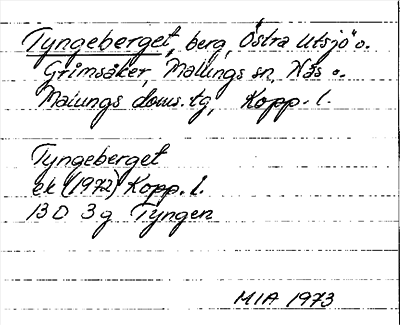 Tyngeberget, berg, Östra Utsjö o.
Grimsåker, Malungs sn, Näs o.
Malungs doms. tg, Kopp. l.
Tyngeberget
ek (1972) Kopp. l.
13 D 3g Tyngen
MIA 1973